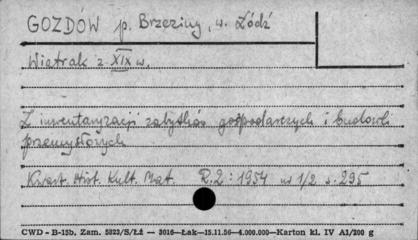 GOZDÓW p. Brzeziny, w. Łódź
Wiatrak z XIX w.
Z inwentaryzacji zabytków gospodarczych i budowli
przemysłowych
Kwart. Hist. Kult. Mat. R.2: 1954 nr 1/2 s. 295
CWD - B-15b, Zam. 5823/S/Łż — 3016—Łak—15.11.56—4.000.000—Karton kl. IV A1/200 g